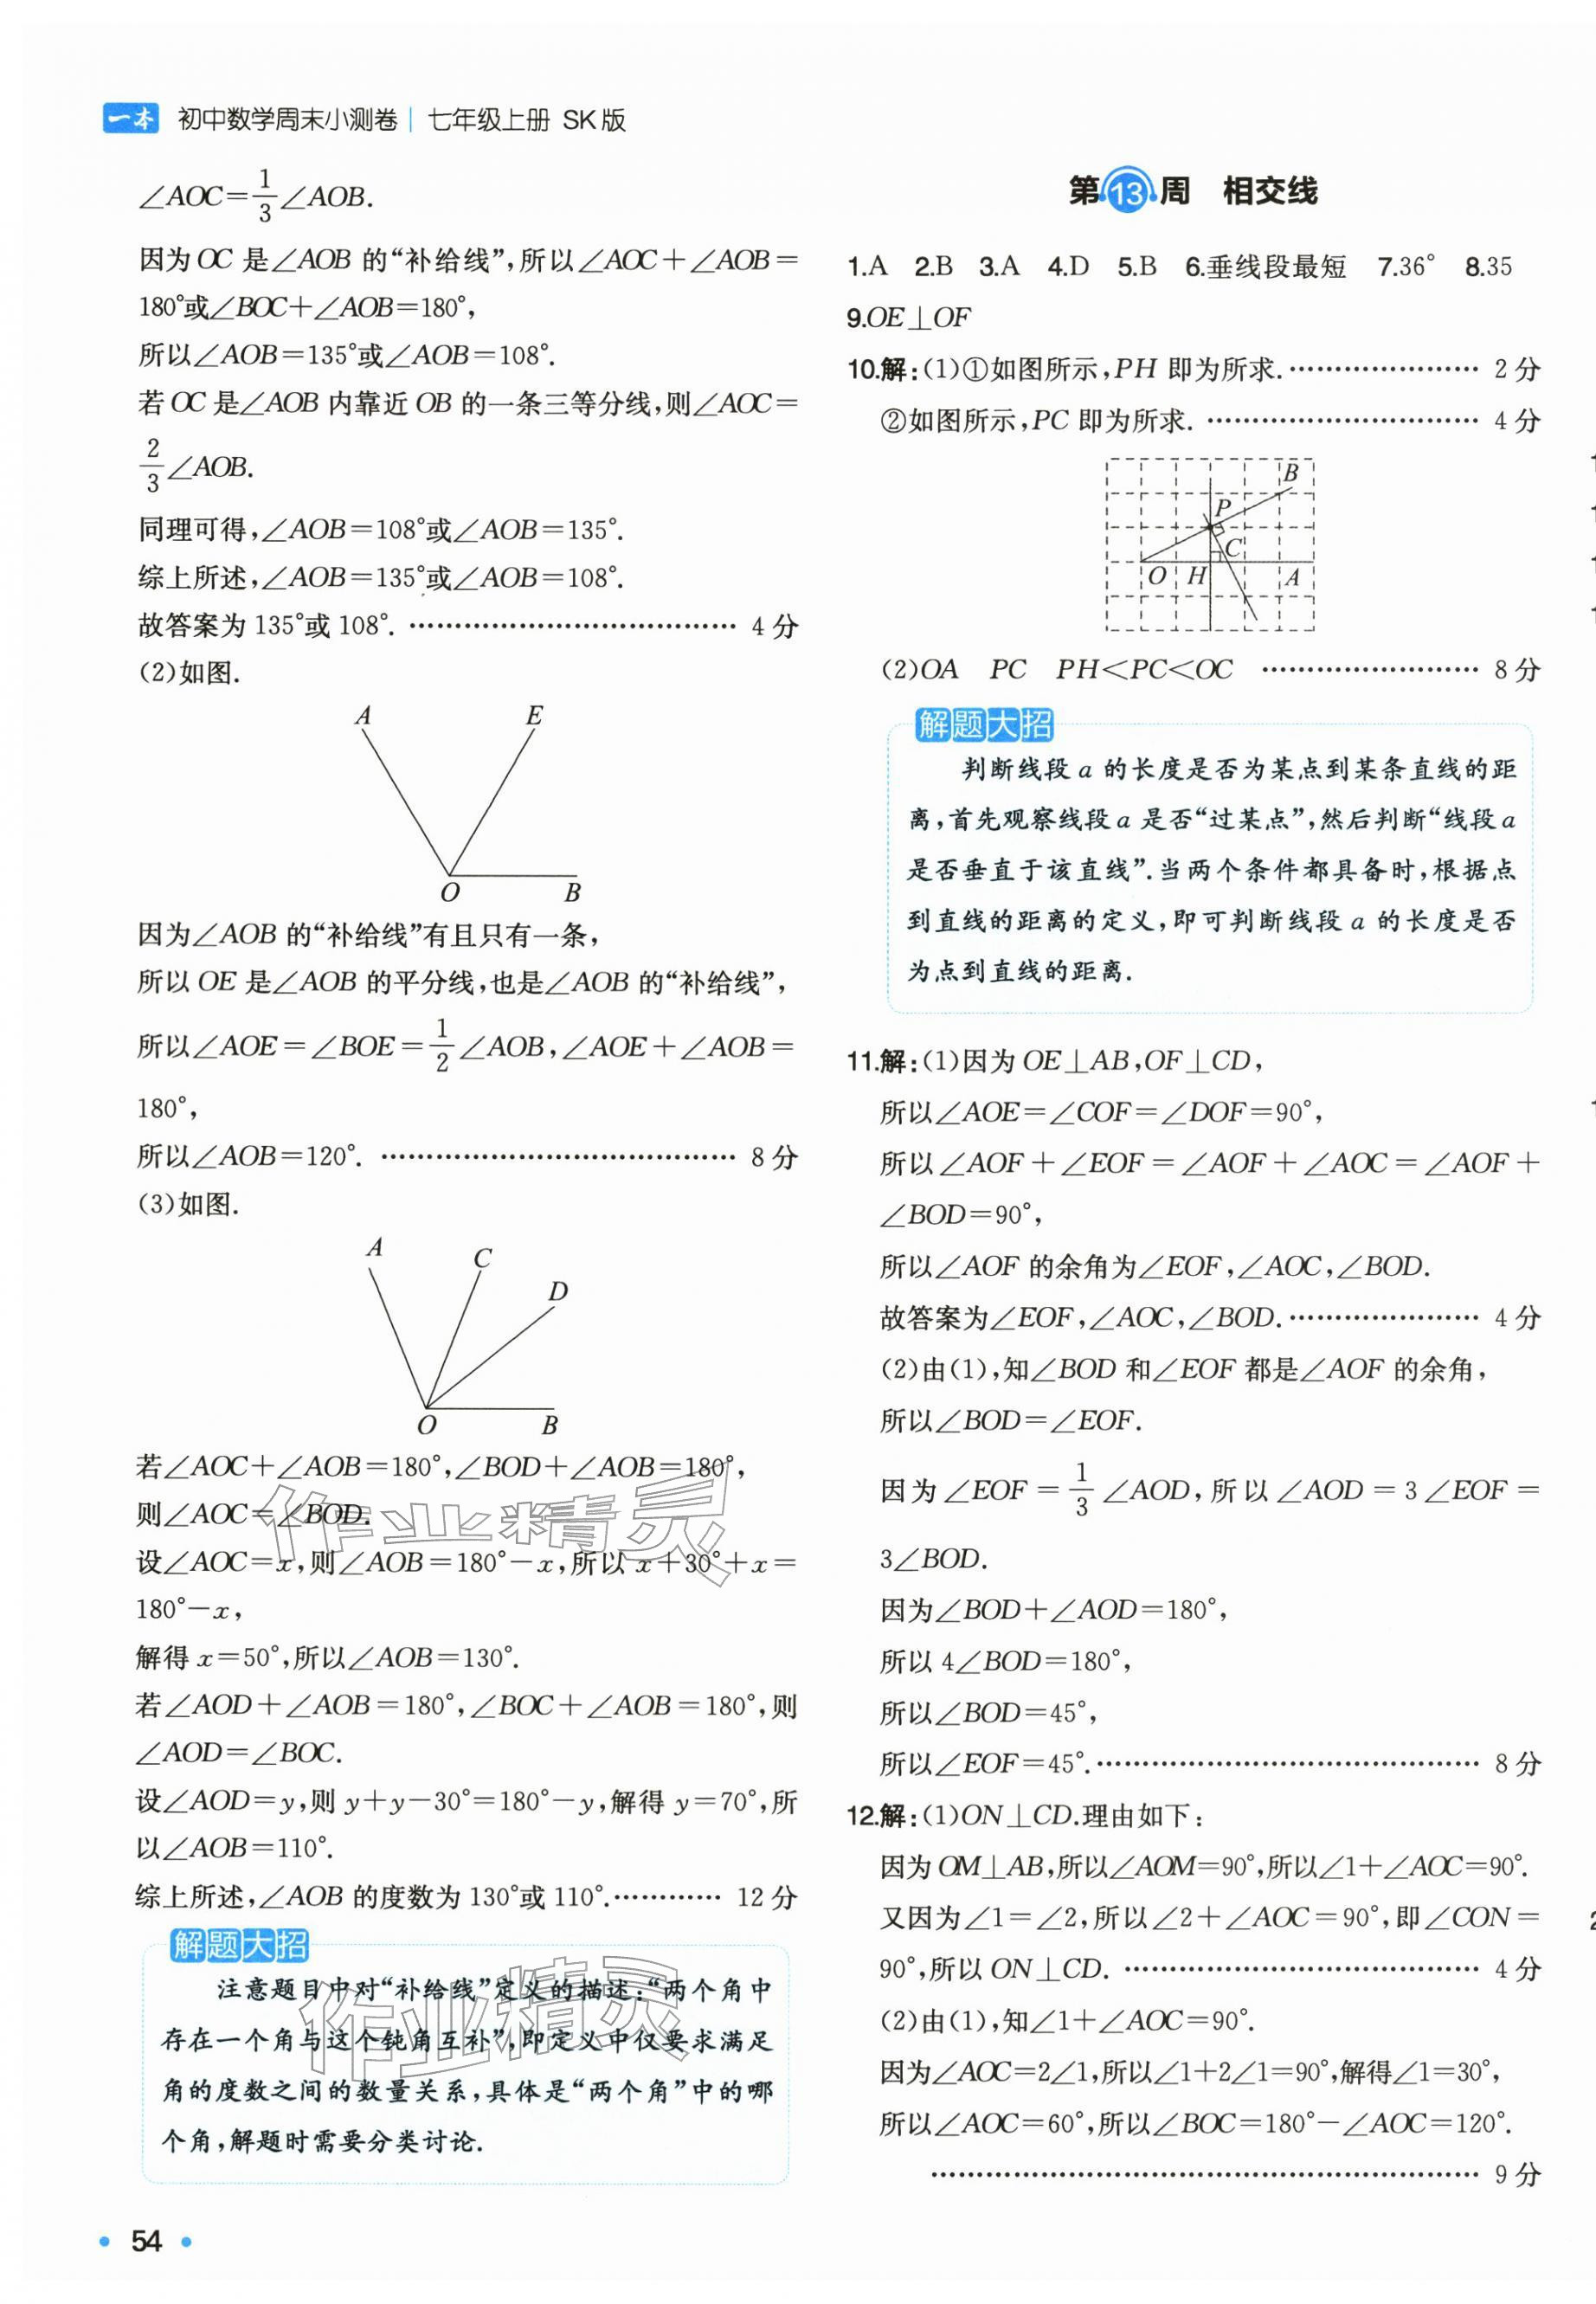 一本 初中数学周末小测卷 | 七年级上册 SK版
∠AOC=1/3∠AOB.
因为OC是∠AOB的“补给线”,所以∠AOC+∠AOB=
180°或∠BOC+∠AOB=180°,
所以∠AOB=135°或∠AOB=108°.
若OC是∠AOB内靠近OB的一条三等分线,则∠AOC=
2/3∠AOB.
同理可得,∠AOB=108°或∠AOB=135°.
综上所述,∠AOB=135°或∠AOB=108°.
故答案为135°或108°. ………………………………… 4分
(2)如图.
A E
O B
因为∠AOB的“补给线”有且只有一条,
所以OE是∠AOB的平分线,也是∠AOB的“补给线”,
所以∠AOE=∠BOE=1/2∠AOB,∠AOE+∠AOB=
180°,
所以∠AOB=120°. …………………………………… 8分
(3)如图.
A C D
O B
若∠AOC+∠AOB=180°,∠BOD+∠AOB=180°,
则∠AOC=∠BOD.
设∠AOC=x,则∠AOB=180°-x,所以x+30°+x=
180°-x,
解得x=50°,所以∠AOB=130°.
若∠AOD+∠AOB=180°,∠BOC+∠AOB=180°,则
∠AOD=∠BOC.
设∠AOD=y,则y+y-30°=180°-y,解得y=70°,所
以∠AOB=110°.
综上所述,∠AOB的度数为130°或110°.………… 12分
解题大招
注意题目中对“补给线”定义的描述:“两个角中
存在一个角与这个钝角互补”,即定义中仅要求满足
角的度数之间的数量关系,具体是“两个角”中的哪
个角,解题时需要分类讨论.
作业精灵
作业精灵
• 54 •
第13周 相交线
1.A 2.B 3.A 4.D 5.B 6.垂线段最短 7.36° 8.35
9.OE⊥OF
10.解:(1)①如图所示,PH即为所求.………………… 2分
②如图所示,PC即为所求. ………………………… 4分
B
P
C
O H A
(2)OA PC PH<PC<OC …………………… 8分
解题大招
判断线段a的长度是否为某点到某条直线的距
离,首先观察线段a是否“过某点”,然后判断“线段a
是否垂直于该直线”.当两个条件都具备时,根据点
到直线的距离的定义,即可判断线段a的长度是否
为点到直线的距离.
11.解:(1)因为OE⊥AB,OF⊥CD,
所以∠AOE=∠COF=∠DOF=90°,
所以∠AOF+∠EOF=∠AOF+∠AOC=∠AOF+
∠BOD=90°,
所以∠AOF的余角为∠EOF,∠AOC,∠BOD.
故答案为∠EOF,∠AOC,∠BOD.………………… 4分
(2)由(1),知∠BOD和∠EOF都是∠AOF的余角,
所以∠BOD=∠EOF.
因为∠EOF=1/3∠AOD,所以∠AOD=3∠EOF=
3∠BOD.
因为∠BOD+∠AOD=180°,
所以4∠BOD=180°,
所以∠BOD=45°,
所以∠EOF=45°.…………………………………… 8分
12.解:(1)ON⊥CD.理由如下:
因为OM⊥AB,所以∠AOM=90°,所以∠1+∠AOC=90°.
又因为∠1=∠2,所以∠2+∠AOC=90°,即∠CON=
90°,所以ON⊥CD. ………………………………… 4分
(2)由(1),知∠1+∠AOC=90°.
因为∠AOC=2∠1,所以∠1+2∠1=90°,解得∠1=30°,
所以∠AOC=60°,所以∠BOC=180°-∠AOC=120°.
…………………………………………………… 9分